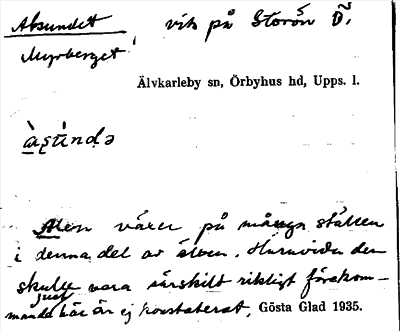 Aksundet, vik på Storön Ö.
Myrberget,
Älvkarleby sn, Örbyhus hd, Upps. l.
Alen växer på många ställen
i denna del av älven. Huruvida den
skulle vara särskilt rikligt förekom-
just
mande här är ej konstaterat, Gösta Glad 1935.